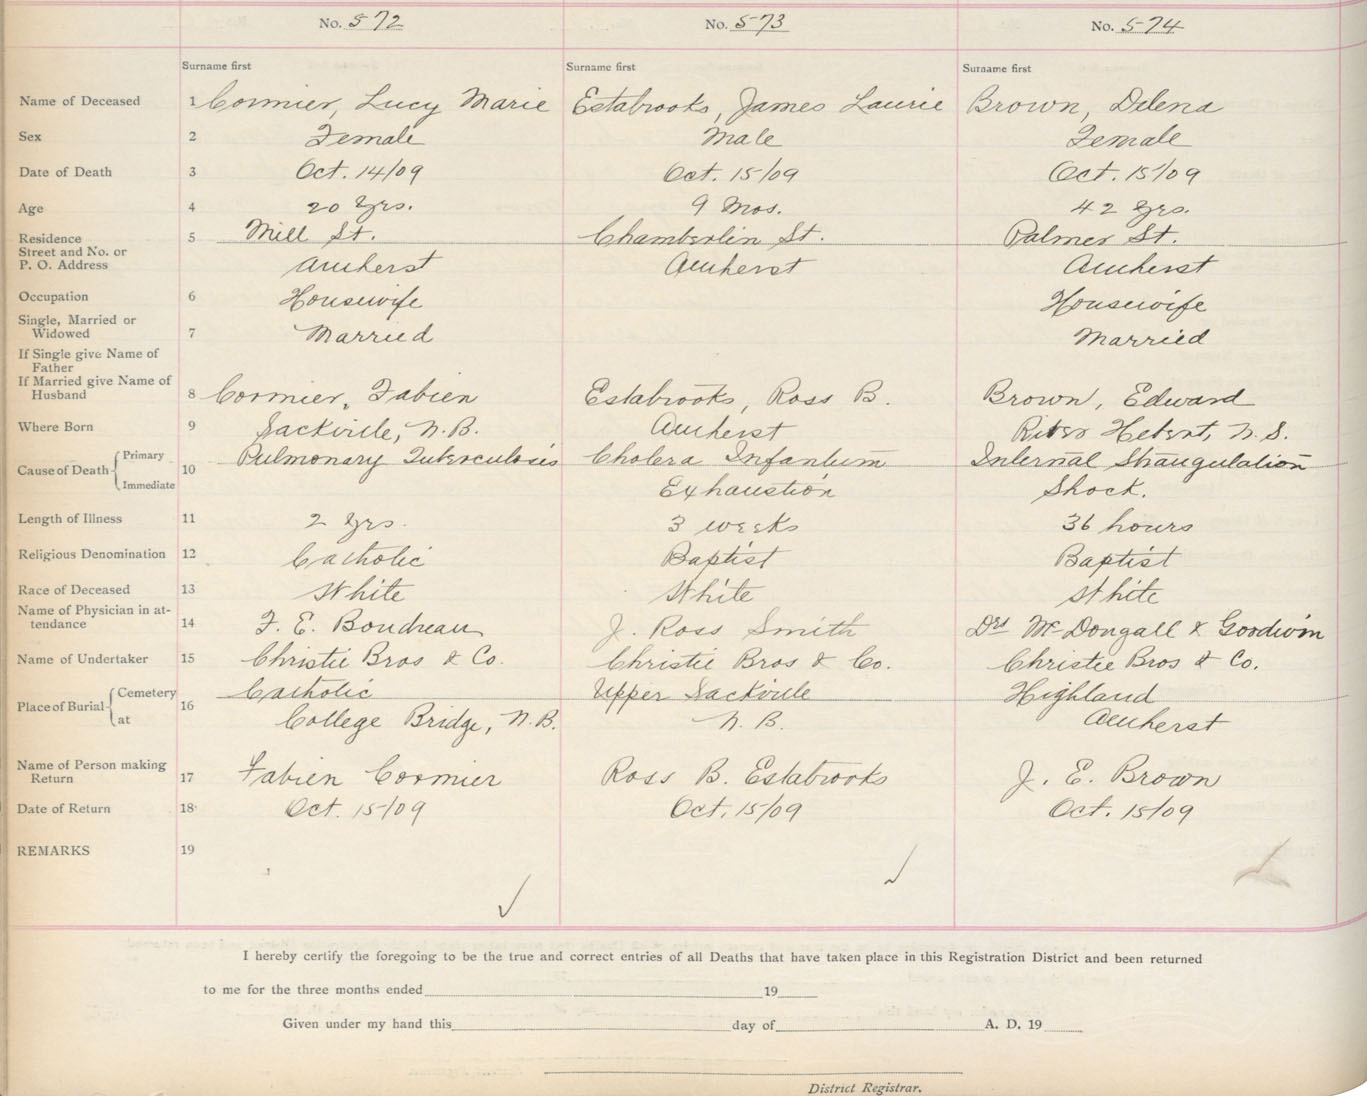 No. 572 No. 573 No. 574
Surname first Surname first Surname first
Name of Deceased 1 Cormier, Lucy Marie Estabrooks, James Laurie Brown, Delena
Sex 2 Female Male Female
Date of Death 3 Oct. 14/09 Oct. 15/09 Oct. 15/09
Age 4 20 Yrs. 9 Mos. 42 Yrs.
Residence 5 Mill St. Chamberlin St. Palmer St.
Street and No. or
P. O. Address Amherst Amherst Amherst
Occupation 6 Housewife Housewife
Single, Married or
Widowed 7 Married Married
If Single give Name of
Father
If Married give Name of
Husband 8 Cormier, Fabien Estabrooks, Ross B. Brown, Edward
Where Born 9 Sackville, N.B. Amherst River Hebert, N.S.
Cause of Death Primary 10 Pulmonary Tuberculosis Cholera Infantum Internal Strangulation
Immediate Exhaustion Shock.
Length of Illness 11 2 yrs. 3 weeks 36 hours
Religious Denomination 12 Catholic Baptist Baptist
Race of Deceased 13 White White White
Name of Physician in at-
tendance 14 F. E. Boudreau J. Ross Smith Drs McDougall & Goodwin
Name of Undertaker 15 Christie Bros & Co. Christie Bros & Co. Christie Bros & Co.
Place of Burial Cemetery 16 Catholic Upper Sackville Highland
at College Bridge, N.B. N.B. Amherst
Name of Person making
Return 17 Fabien Cormier Ross B. Estabrooks J. E. Brown
Date of Return 18 Oct. 15/09 Oct. 15/09 Oct. 15/09
REMARKS 19
I hereby certify the foregoing to be the true and correct entries of all Deaths that have taken place in this Registration District and been returned
to me for the three months ended 19
Given under my hand this day of A. D. 19
District Registrar.